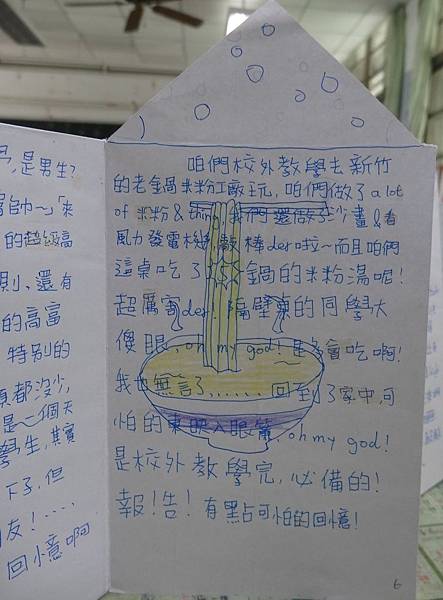 是男生?
富帥~」「來
的超級高
則、還有
的高富
特別的
都沒少,
是~個天
學生,其實
下了,但
友!.....
回憶啊
咱們校外教學去新竹
的老鍋米粉工廠玩,咱們做了a lot
of 米粉 & thing,我們還做了沙畫 & 看
風力發電機,敲棒der啦~而且咱們
這桌吃了鍋的米粉湯呢!
超厲害der!隔壁桌的同學大
傻眼,oh my god!是多會吃啊!
我也無言了.......回到了家中,可
怕的東西映入眼簾,oh my god!
是校外教學完,必備的!
報!告!有點可怕的回憶!
6